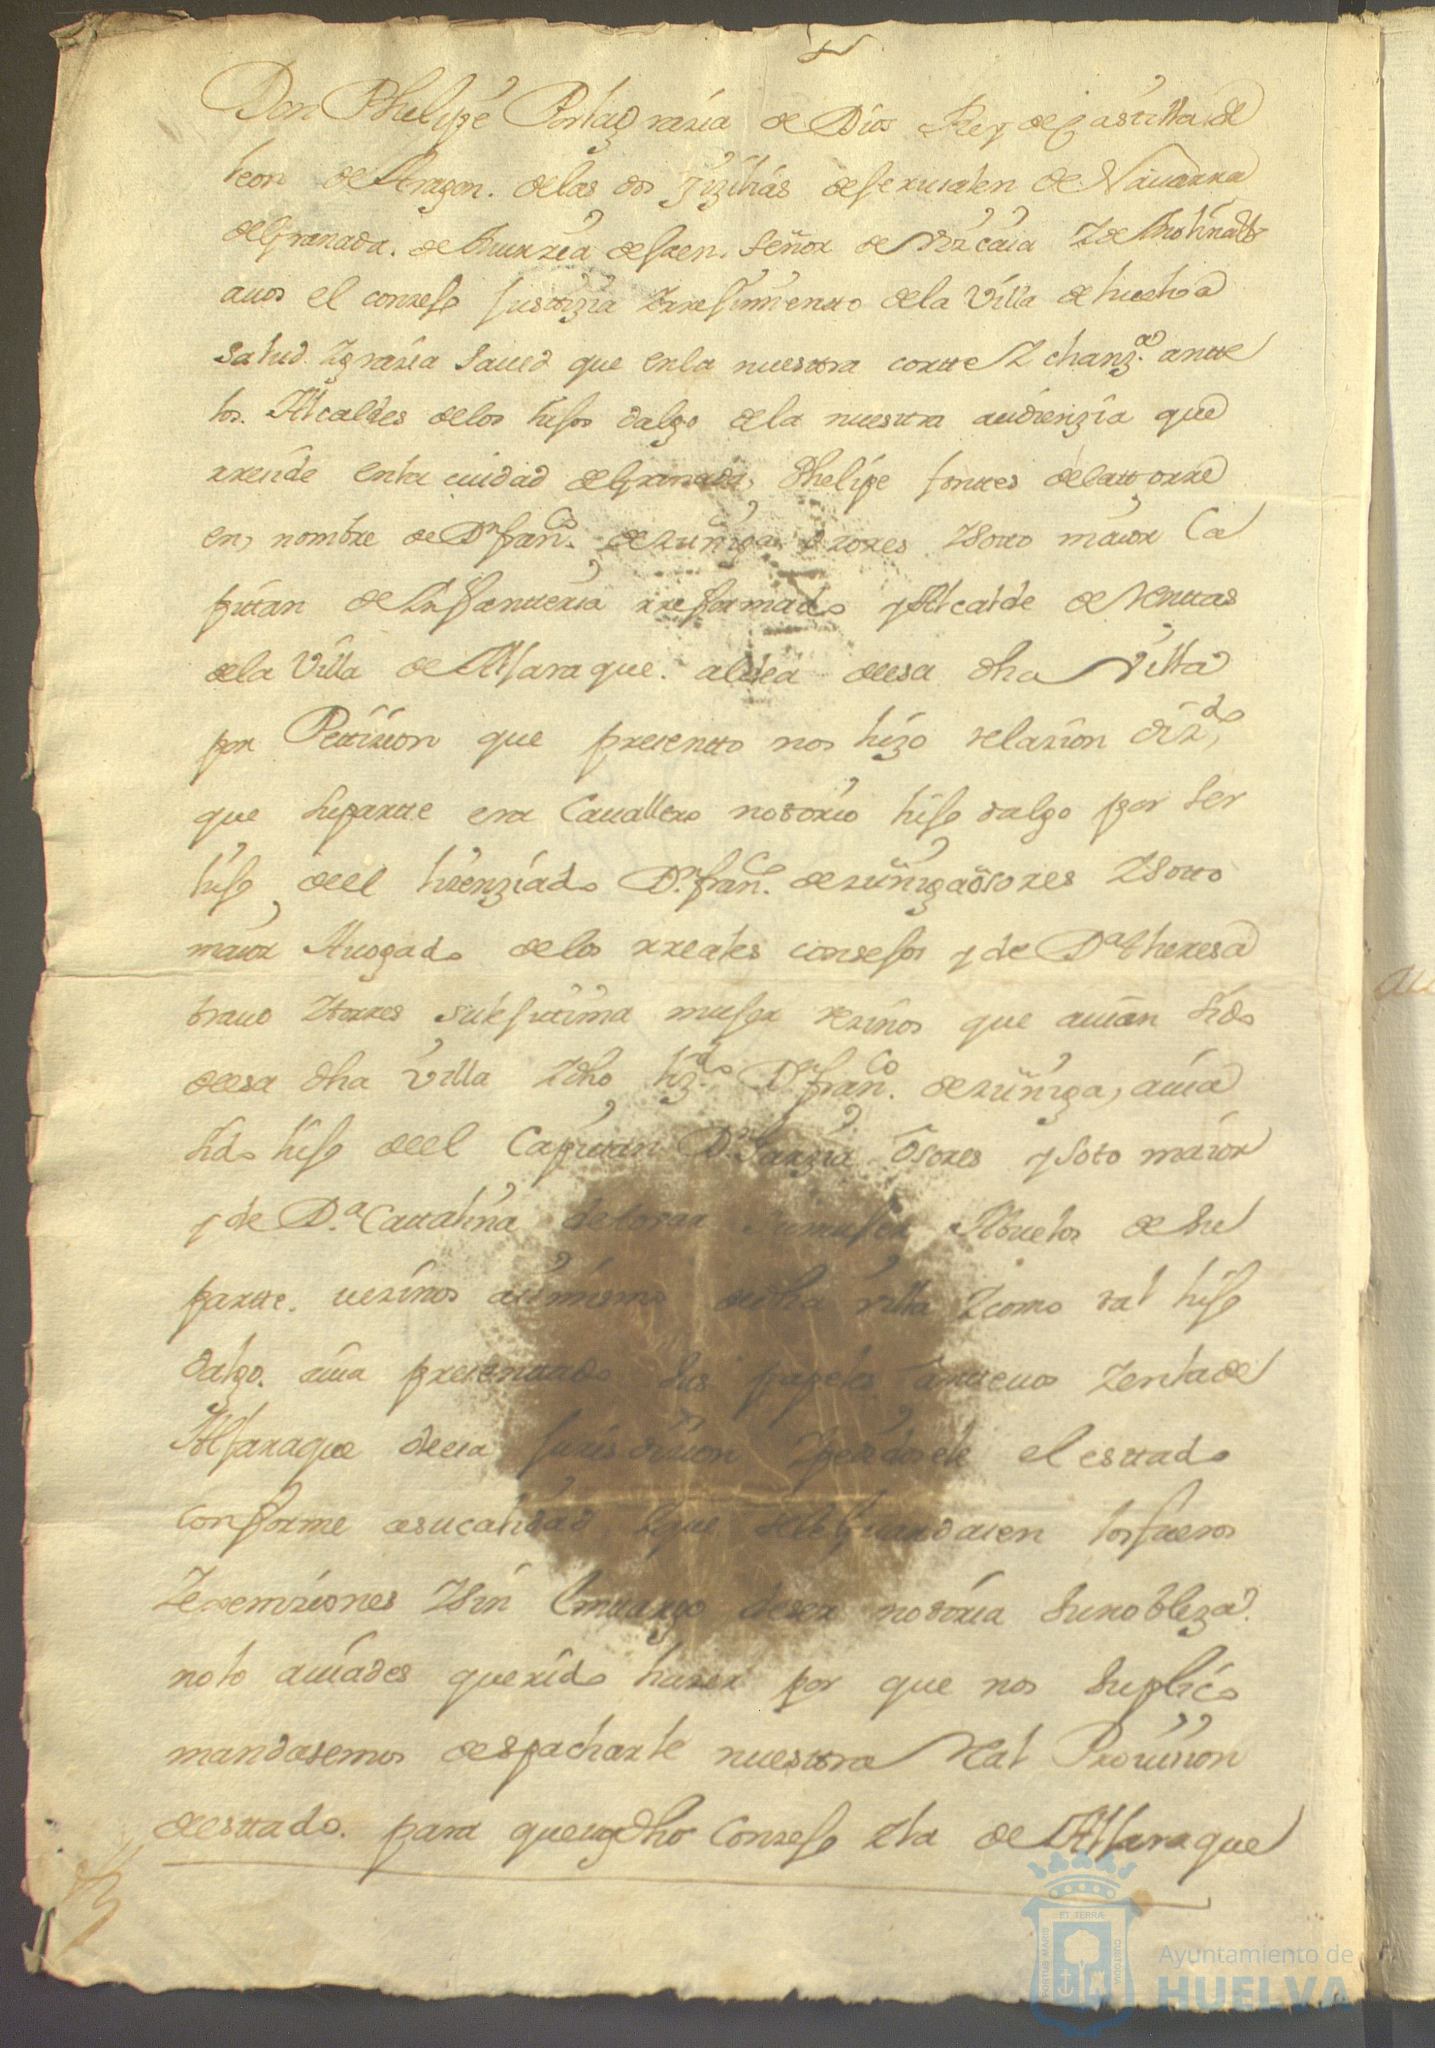 Don Phelipe Por la grazia de Dios Rey de Castilla de
leon de Aragon. de las dos Zizilias de Jerusalen de Navarra
de Granada. de Murzia de Jaen. señor de Vizcaia Z de Molina &
a uos el conzejo Justizia Z rrejimientto de la Villa de huelva
salud Z grazia Saued que en la nuesttra cortte Z chanz.a antte
los. Alcaldes de los hijos dalgo de la nuesttra audienzia que
rreside en la ciudad de Granada, Phelipe fonttes de la ttorre
en nombre de Dn franco. de zuñiga ozores Z sotto maior Ca
pittan de Ynfantteria rreformado y Alcalde de Venttas
de la Villa de Aljaraque. aldea de esa dha Villa
por Pettizion que presentto nos hizo relazion diz.do
que su partte era Cauallero nottorio hijo dalgo por ser
hijo de el lizenziado Dn. franco. de zuñiga ôsores Z sotto
maior Auogado de los rreales consejos y de Da theresa
brauo Z torres su lejittima mujer vezinos que auian sido
de esa dha Villa Z dho liz.do Dn franco. de zuñiga, auia
sido hijo de el Capittan Dn Garzia Osores y soto maior
y de D.a Cattalina de touar su mujer Abuelos de su
partte. uezinos asi mismo de dha villa Z como tal hijo
dalgo. auia presenttado sus papeles antte uos Z en la de
Aljaraque de esa Jurisdizion Z pedidosele el esttado
conforme a su calidad Z que se le Guardasen los fueros
Z exsemziones Z sin Embargo de ser nottoria su nobleza.
no lo auiades querido hazer por que nos suplico
mandasemos despacharle nuesttra Real Prouission
de esttado. para que ese dho Conzejo Z la de Aljaraque
PORTUS MARIS
ET TERRÆ
CUSTODIA
Ayuntamiento de
HUELVA